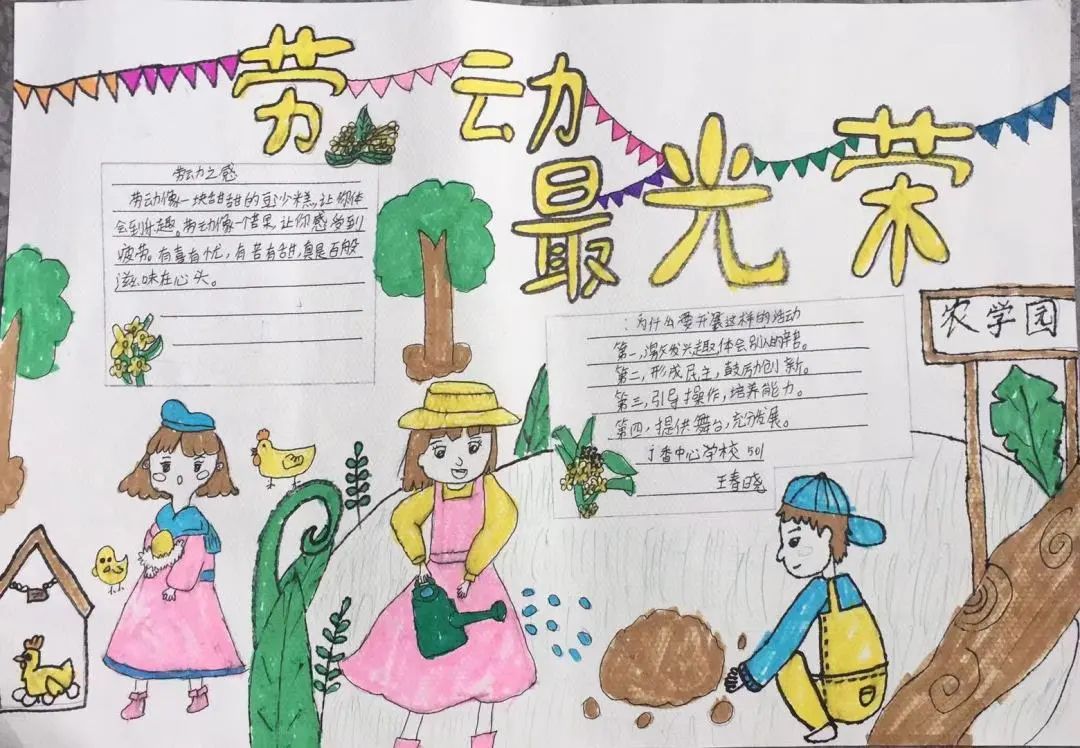 劳动
最光荣
劳动之感
劳动像一块甜甜的豆沙糕,让你体
会到乐趣。劳动像一个苦果,让你感受到
疲劳。有喜有忧,有苦有甜,真是百般
滋味在心头。
:为什么要开展这样的活动
第一,激发兴趣,体会别人的辛苦。
第二,形成民主,鼓励创新。
第三,引导操作,培养能力。
第四,提供舞台,充分发展。
丁香中心学校 501
王春晓
农学园